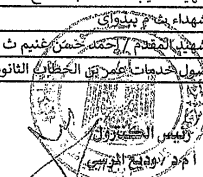 شهداء ث م ببدواي
شهيد المقدم / احمد حسن غنيم ث
سول خدمات عمر بن الخطاب الثانو
رئيس الكنترول
أ م د / وديع المرسي